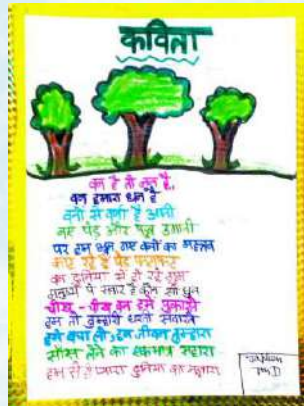 कविता
वन है तो हम है,
वन हमारा धन है
वनो से वर्षा है आती
नए पेड़ और फूल उगाती
पर हम भूल गए वनों का महत्व
काट रहे है पेड़
दुनिया से हो रहे गुम
सवार है कौन सी धुन
चीख - चीख वन हमे पुकारते
हम तो तुम्हारी धरती सवारते
हमे बचा लो, हम जीवन तुम्हारा
साँस लेने का एकमात्र सहारा
हम से है प्यारा दुनिया का